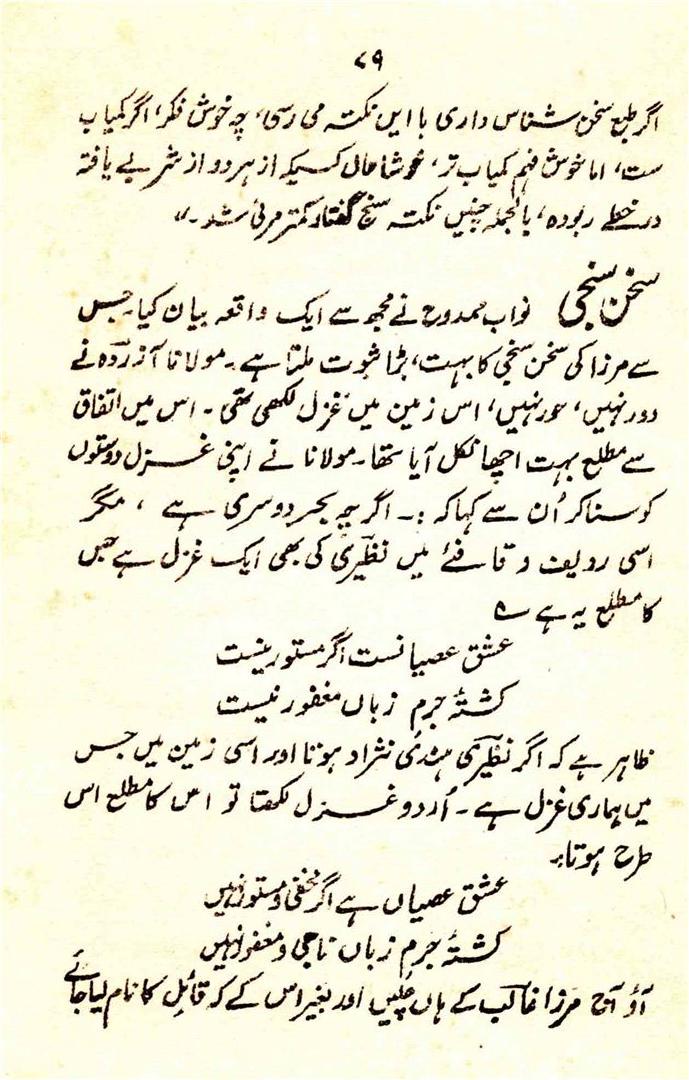 ۷۹
اگر طبع سخن شناس داری با ایں نکتہ می رسی، چہ خوش فکر، اگر کمیاب
ست، اما خوش فہم کمیاب تر، خوشا حال کسیکہ از ہر دو از شربے یافتہ
در خطے ربودہ، بالجملہ چنیں نکتہ سنج گفتار کمتر مرئی شد۔"
سخن سنجی نواب ممدوح نے مجھ سے ایک واقعہ بیان کیا۔ جس
سے مرزا کی سخن سنجی کا بہت، بڑا ثبوت ملتا ہے۔ مولانا آزردہ نے
دور نہیں، حور نہیں، اس زمین میں غزل لکھی تھی۔ اس میں اتفاق
سے مطلع بہت اچھا نکل آیا تھا۔ مولانا نے اپنی غزل دوستوں
کو سنا کر اُن سے کہا کہ :۔ اگرچہ بحر دوسری ہے ، مگر
اسی ردیف و قافئے میں نظیری کی بھی ایک غزل ہے جس
کا مطلع یہ ہے ؎
عشق عصیانست اگر مستور نیست
کشتۂ جرم زباں مغفور نیست
ظاہر ہے کہ اگر نظیری ہندی نژاد ہوتا اور اسی زمین میں جس
میں ہماری غزل ہے۔ اُردو غزل لکھتا تو اس کا مطلع اس
طرح ہوتا:۔
عشق عصیاں ہے اگر مخفی و مستور نہیں
کشتۂ جرم زباں ناجی و مغفور نہیں
آؤ آج مرزا غالب کے ہاں چلیں اور بغیر اس کے کہ قائل کا نام لیا جائے